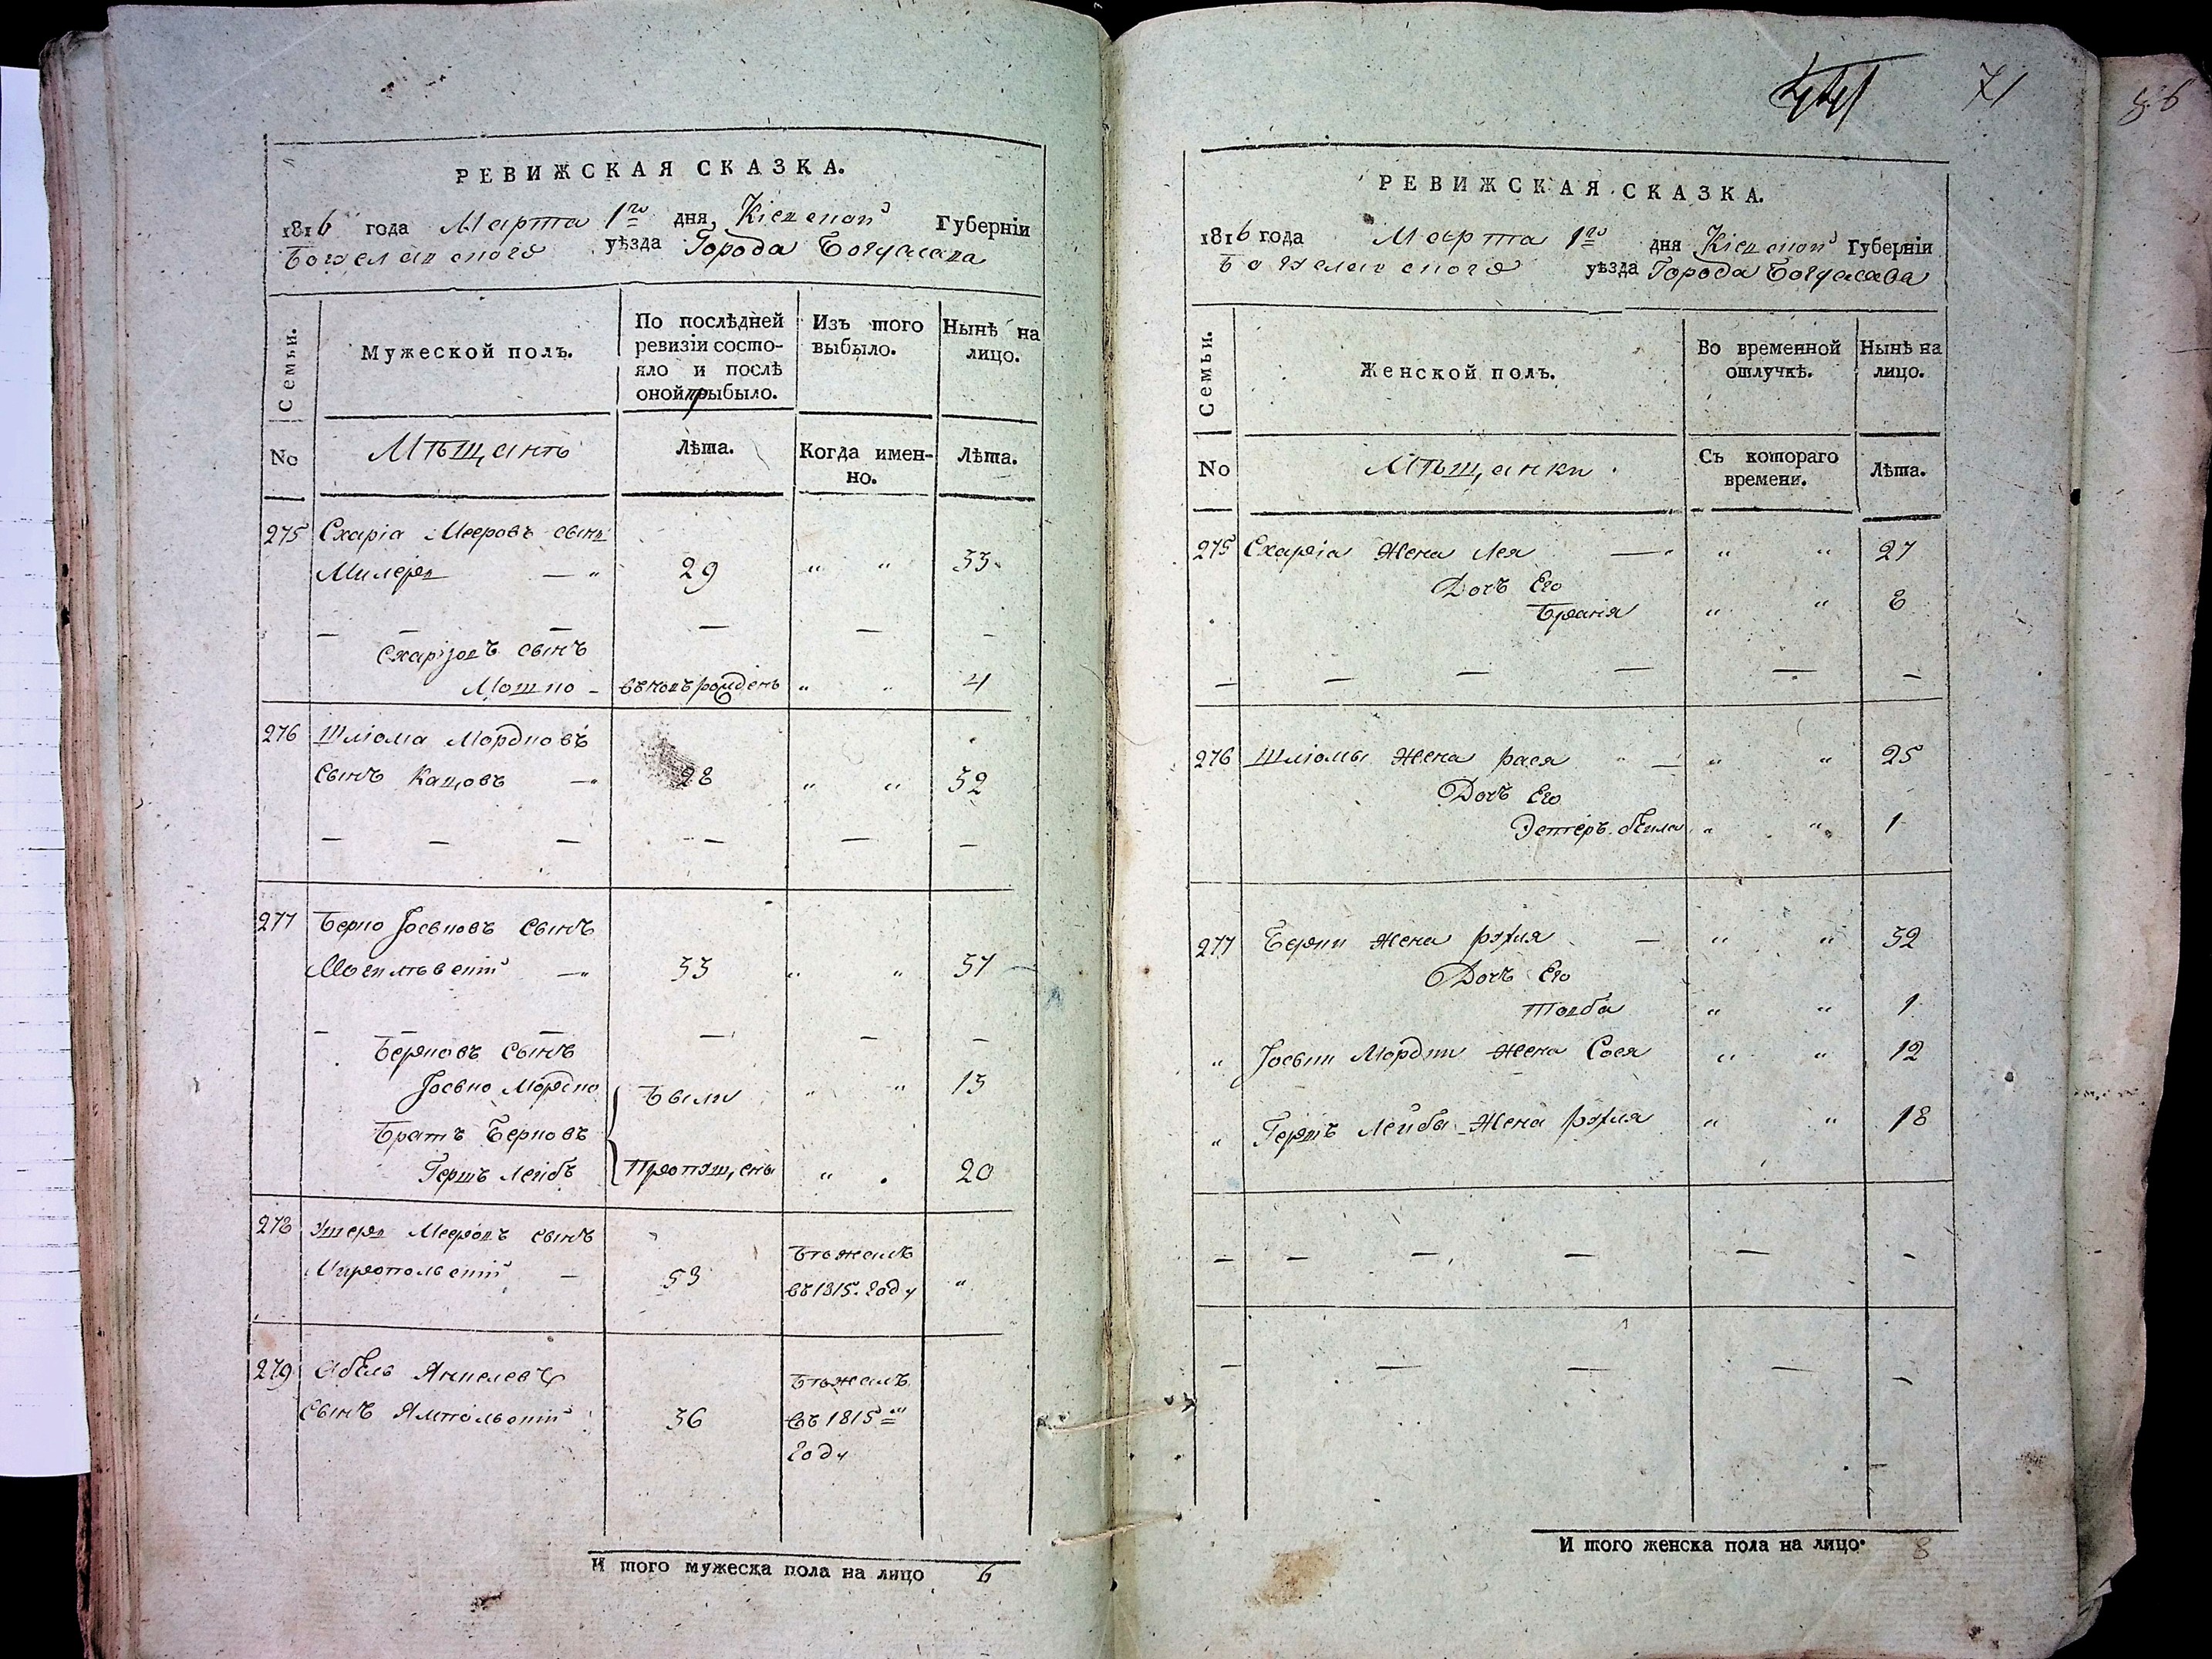 РЕВИЖСКАЯ СКАЗКА.
1816 года Марта 1го дня, Кіевской Губерніи
Богуславского уѣзда Города Богуслава
Семьи.
Мужеской полъ.
По послѣдней
ревизіи состо-
яло и послѣ
оной прыбыло.
Изъ того
выбыло.
Нынѣ на
лицо.
No
Мѣщанъ
Лѣта.
Когда имен-
но.
Лѣта.
275 Схаріа Мееровъ сынъ
Милеръ — " 29 " " 33
— — — — — —
Схаріовъ сынъ
Мошко - вновь рожденъ " " 4
276 Шліома Мордковъ
сынъ Кацовъ — 28 " " 32
— — — — — —
277 Берко Іоськовъ Сынъ
Могилѣвскій — 33 " " 37
— — — — — —
Берковъ Сынъ
Іосько Мордко Были " " 13
Братъ Берковъ
Гершъ Лейбъ Пропущены " 20
278 Ушеръ Мееровъ сынъ
Миропольскій — 53 Бѣжалъ
въ 1815. году "
279 Абель Янкелевъ
Сынъ Ямпольскій 36 Бѣжалъ
въ 1815м
году
И того мужеска пола на лицо 6
71
86
РЕВИЖСКАЯ СКАЗКА.
1816 года Марта 1го дня Кіевской Губерніи
Богуславского уѣзда Города Богуслава
Семьи.
Женской полъ.
Во временной
отлучкѣ.
Нынѣ на
лицо.
No
Мѣщанки
Съ котораго
времени.
Лѣта.
275 Схаріа Жена Лея — " " 27
Дочь Его
Браня " " 8
— — — — — —
276 Шліомы Жена Рася — " " 25
Дочь Его
Эстеръ бейла " " 1
277 Берки Жена Рухля — " " 32
Дочь Его
Товба " " 1
" Іоськи Мордки Жена Сося " " 12
" Гершъ Лейбы Жена Рухля " " 18
— — — — — —
— — — — —
И того женска пола на лицо. 8